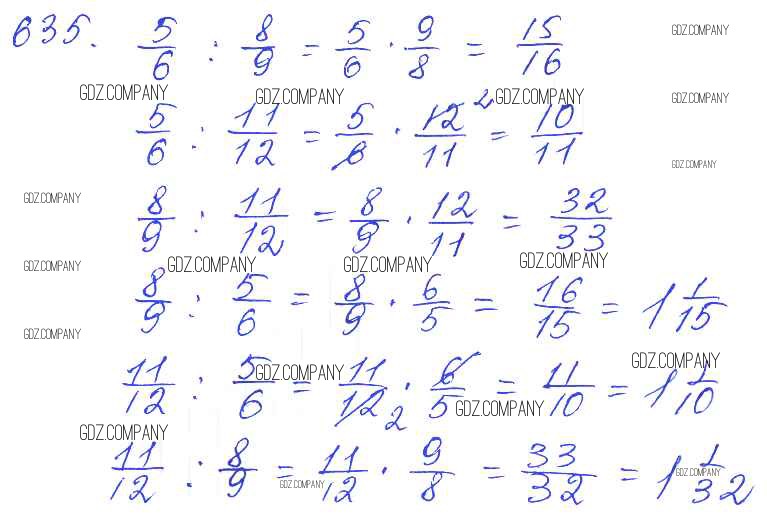 635. 5/6 : 8/9 = 5/6 · 9/8 = 15/16
GDZ.COMPANY
GDZ.COMPANY GDZ.COMPANY GDZ.COMPANY GDZ.COMPANY
5/6 : 11/12 = 5/6 · 12/11 2 = 10/11
GDZ.COMPANY
GDZ.COMPANY
8/9 : 11/12 = 8/9 · 12/11 = 32/33
GDZ.COMPANY GDZ.COMPANY GDZ.COMPANY GDZ.COMPANY
8/9 : 5/6 = 8/9 · 6/5 = 16/15 = 1 1/15
GDZ.COMPANY
11/12 : 5/6 = 11/12 2 · 6/5 = 11/10 = 1 1/10
GDZ.COMPANY GDZ.COMPANY GDZ.COMPANY
GDZ.COMPANY
11/12 : 8/9 = 11/12 · 9/8 = 33/32 = 1 1/32
GDZ.COMPANY GDZ.COMPANY